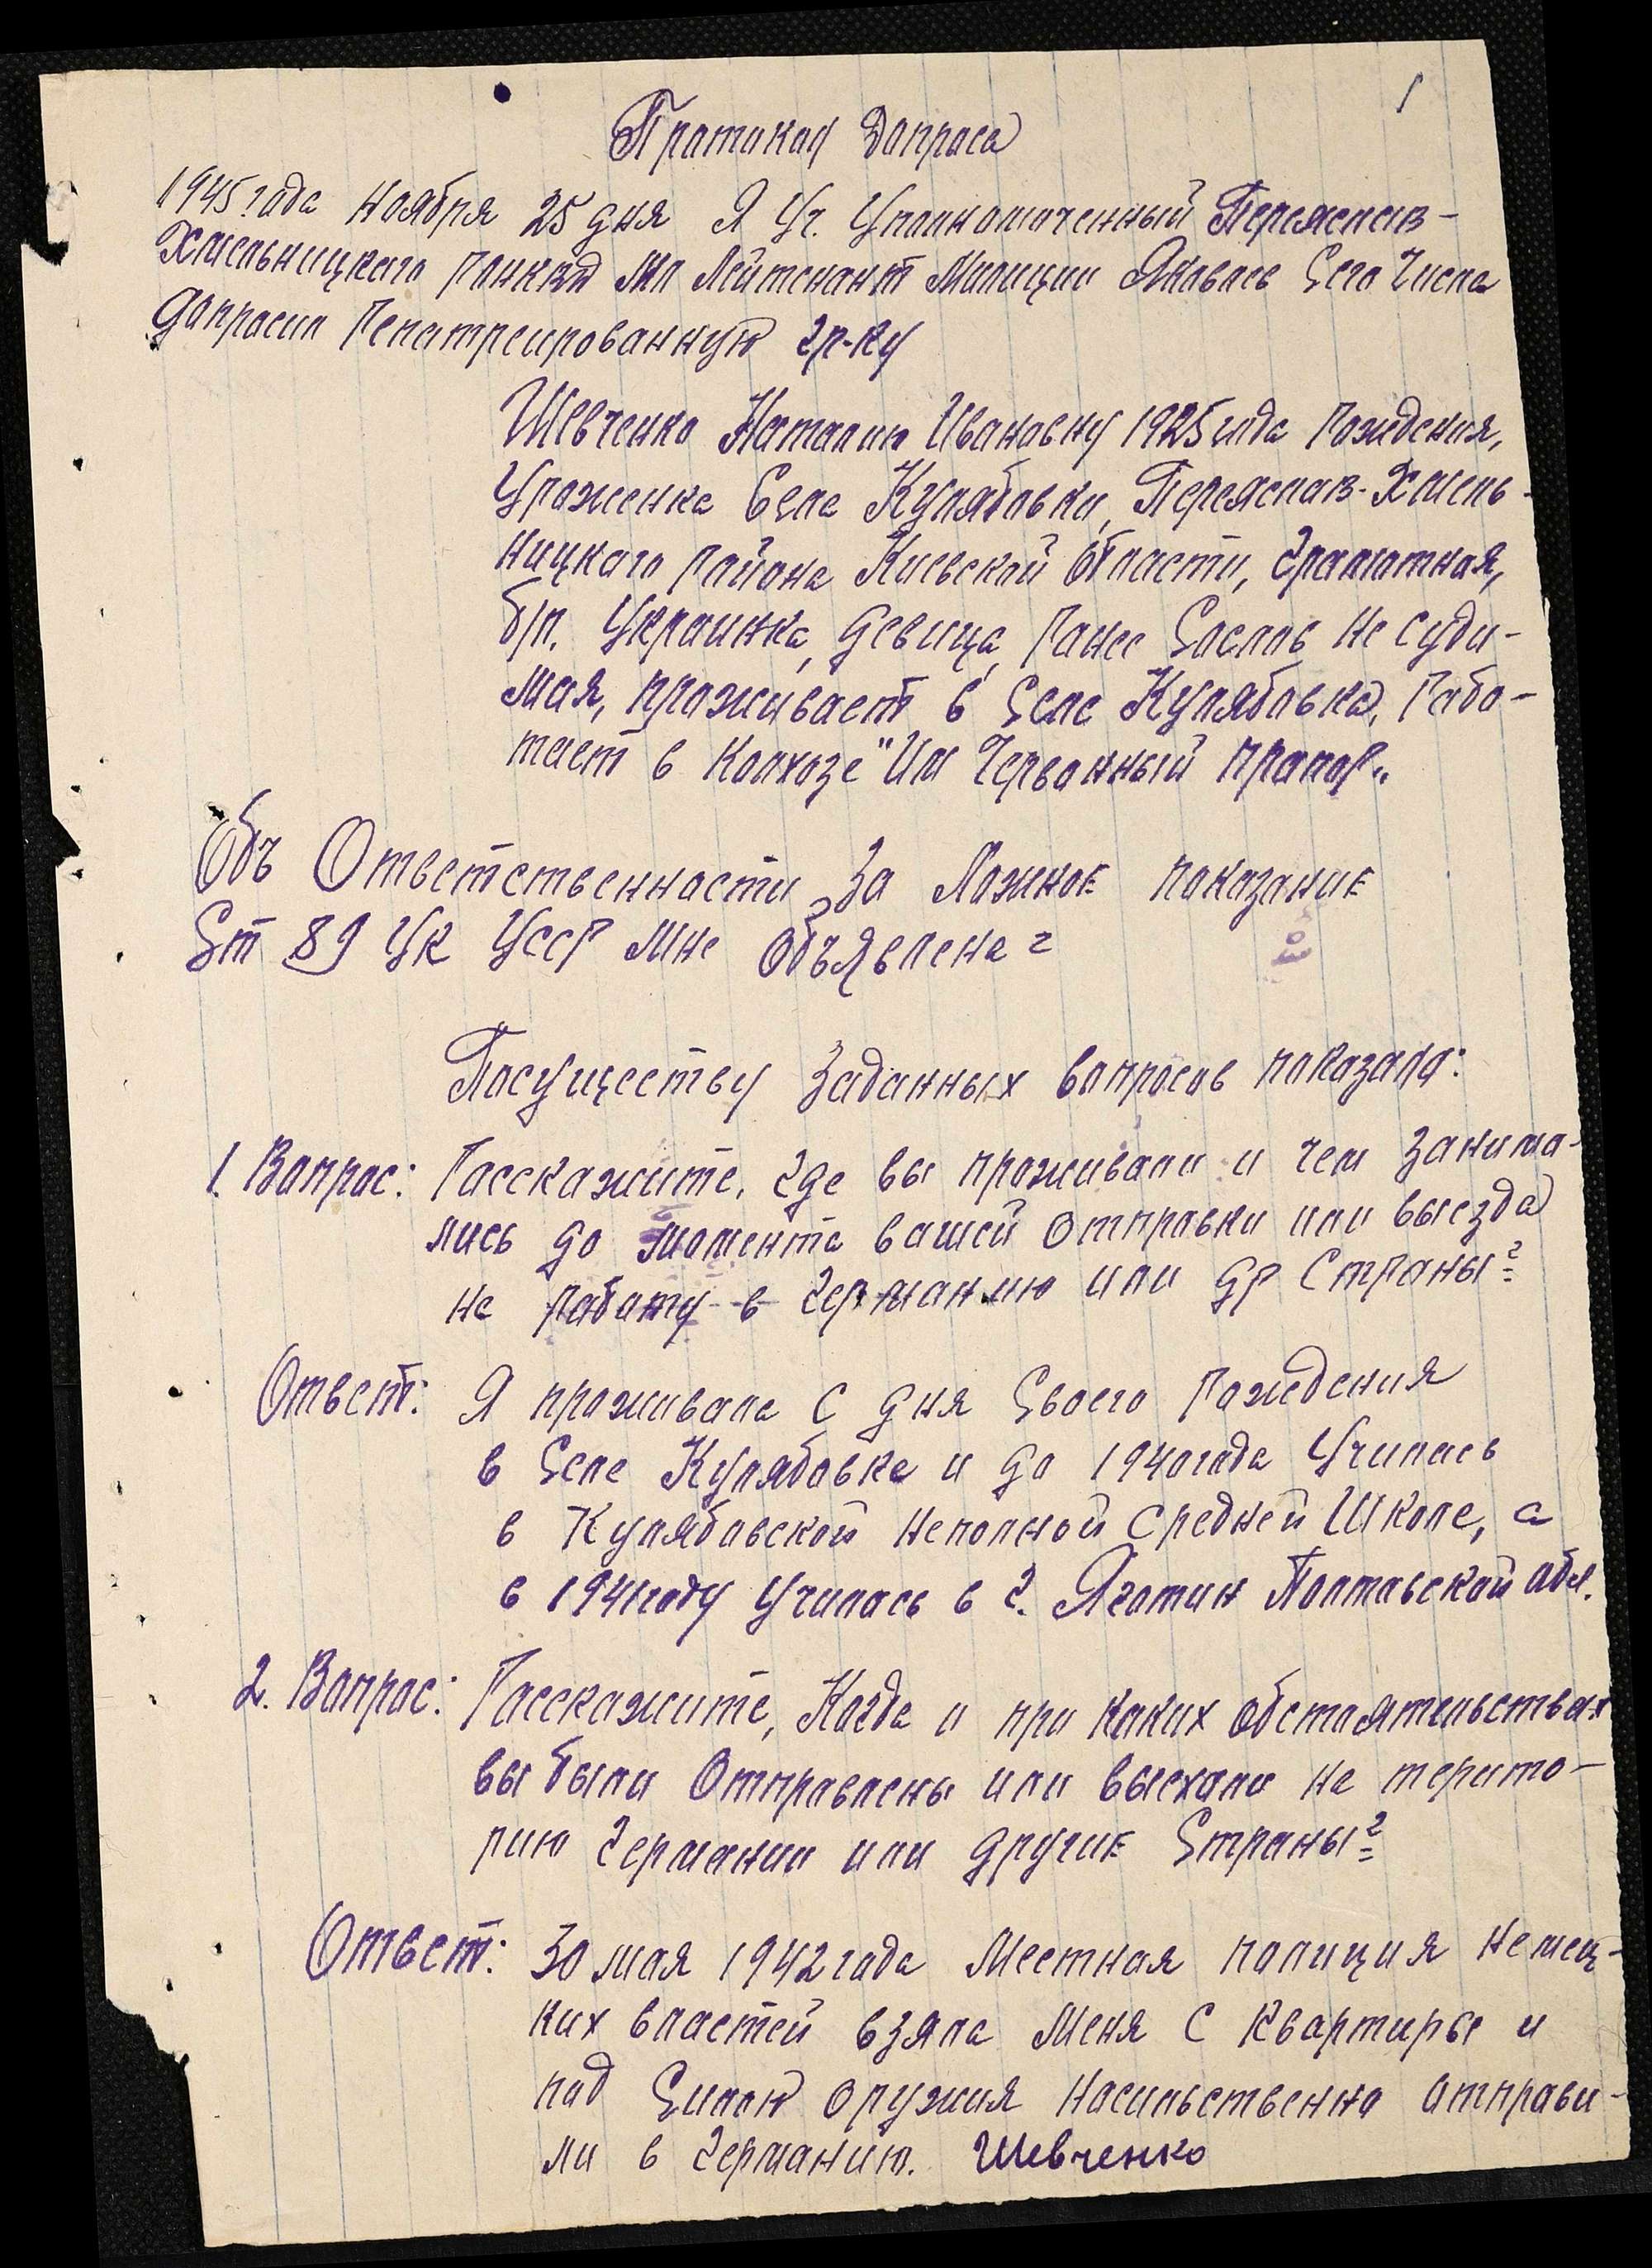 1
Протокол Допроса
1945 года Ноября 25 дня Я Уч. Уполномоченный Переяслав-
Хмельницкого РОНКВД Мл Лейтенант Милиции Яковлев Сего Числа
допросил Репатреированную гр-ку
Шевченко Наталию Ивановну 1925 года Рождения,
Уроженка Села Кулябовки, Переяслав-Хмель-
ницкого Района Киевской Области, грамотная,
б/п. Украинка, девица, Ранее Сослов не суди-
мая, проживает в Селе Кулябовка, Рабо-
тает в Колхозе "Им Червонный Прапор"
Объ Ответственности За Ложное показание
Ст 89 УК УССР Мне Объявлена
Посуществу Заданных вопросов показала:
1. Вопрос: Расскажите, где вы проживали и чем занима-
лись до момента вашей отправки или выезда
на работу в германию или др Страны?
Ответ: Я проживала С дня Своего Рождения
в Селе Кулябовка и до 1940 года Училась
в Кулябовской Неполной Средней Школе, а
в 1941 году Училась в г. Яготин Полтавской обл.
2. Вопрос: Расскажите, Когда и при каких обстоятельствах
вы были Отправлены или выехали на терито-
рию германии или другие Страны?
Ответ: 30 мая 1942 года Местная полиция Немец-
ких властей взяла Меня С Квартиры и
под Силой оружия Насильственно отправи-
ли в германию. Шевченко